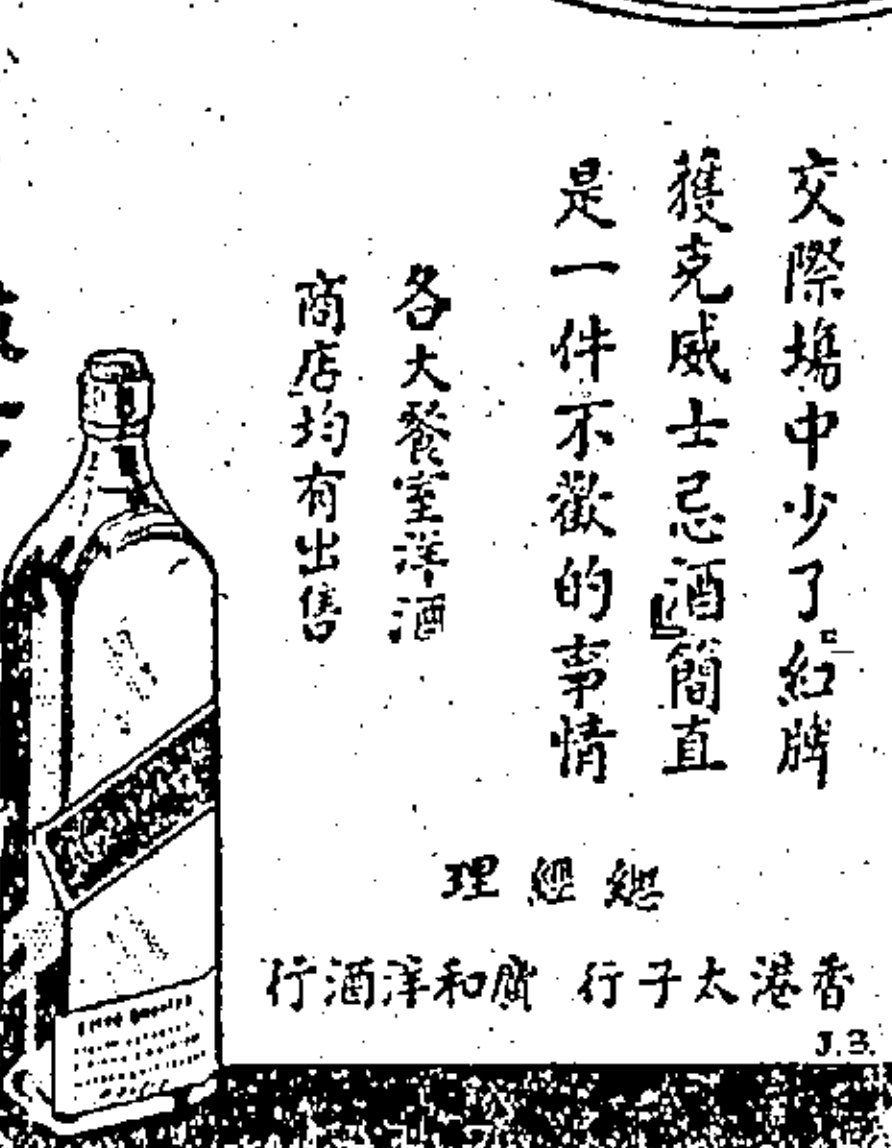 交際塲中少了紅牌
獲克威士忌酒簡直
是一件不歡的事情
各大餐室洋酒
商店均有出售
總經理
香港太子行 廣和洋酒行
J.B.